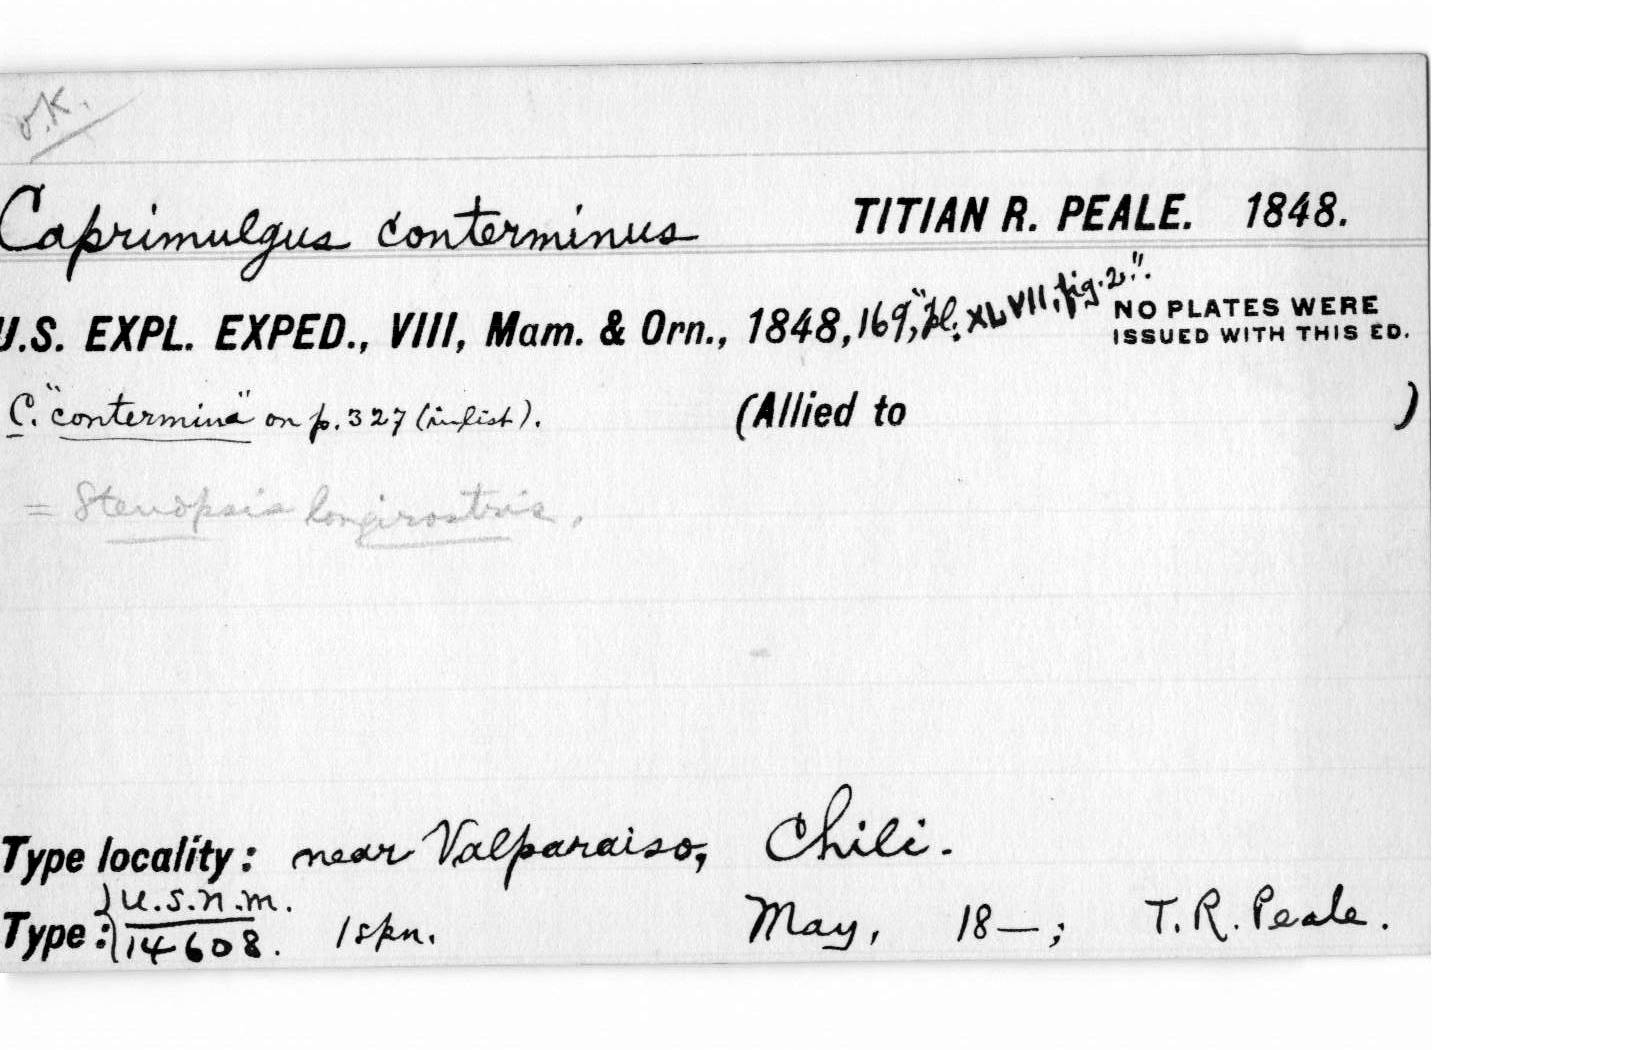 O.K.
Caprimulgus conterminus TITIAN R. PEALE. 1848.
U.S. EXPL. EXPED., VIII, Mam. & Orn., 1848, 169, "pl. XLVII, fig. 2". NO PLATES WERE
ISSUED WITH THIS ED.
C. "contermina" on p. 327 (in list). (Allied to )
= Stenopsis longirostris.
Type locality: near Valparaiso, Chili.
Type: { U.S.N.M.
14608. 1 spn. May, 18—; T. R. Peale.